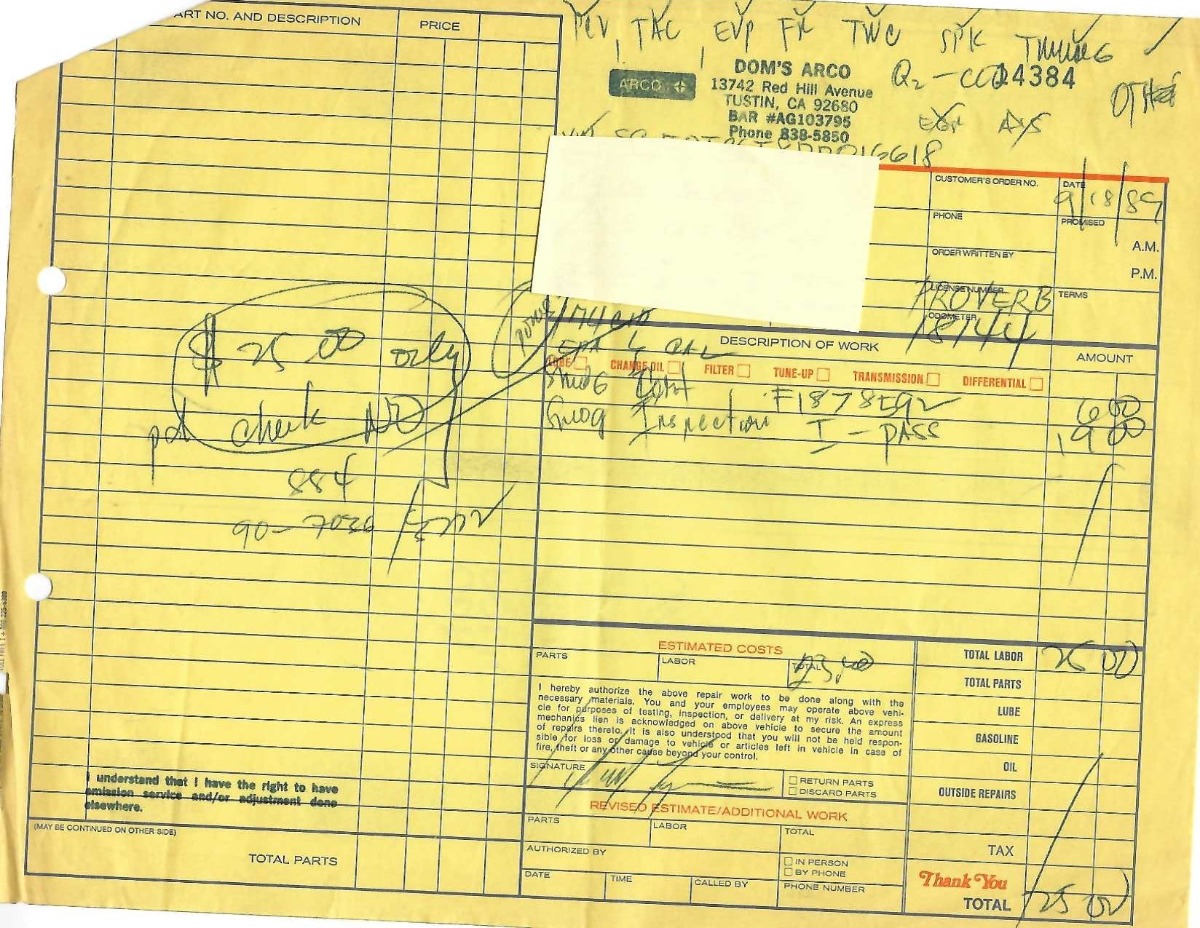 PART NO. AND DESCRIPTION PRICE
PCV TAC EVP FR TWC SPK TIMING
ARCO
DOM'S ARCO
13742 Red Hill Avenue
TUSTIN, CA 92680
BAR #AG103795
Phone 838-5850
14384
O2
OTHER
16618
CUSTOMER'S ORDER NO.
DATE
9/18/89
PHONE
PROMISED
A.M.
P.M.
ORDER WRITTEN BY
LICENSE NUMBER
PROVERB
TERMS
ODOMETER
18744
DESCRIPTION OF WORK
AMOUNT
EPA & CAL
LUBE CHANGE OIL FILTER TUNE-UP TRANSMISSION DIFFERENTIAL
Smog F1878592 6 00
Smog Inspection I - PASS 19 00
$25 00 only
pd check NO
884
90-7036/3222
ESTIMATED COSTS
PARTS LABOR TOTAL
I hereby authorize the above repair work to be done along with the
necessary materials. You and your employees may operate above vehi-
cle for purposes of testing, inspection, or delivery at my risk. An express
mechanics lien is acknowledged on above vehicle to secure the amount
of repairs thereto. It is also understood that you will not be held respon-
sible for loss or damage to vehicle or articles left in vehicle in case of
fire, theft or any other cause beyond your control.
SIGNATURE
RETURN PARTS
DISCARD PARTS
TOTAL LABOR 25 00
TOTAL PARTS
LUBE
GASOLINE
OIL
OUTSIDE REPAIRS
TAX
Thank You
TOTAL 25 00
REVISED ESTIMATE/ADDITIONAL WORK
PARTS LABOR TOTAL
AUTHORIZED BY
IN PERSON
BY PHONE
DATE TIME CALLED BY PHONE NUMBER
I understand that I have the right to have
emission service and/or adjustment done
elsewhere.
(MAY BE CONTINUED ON OTHER SIDE)
TOTAL PARTS